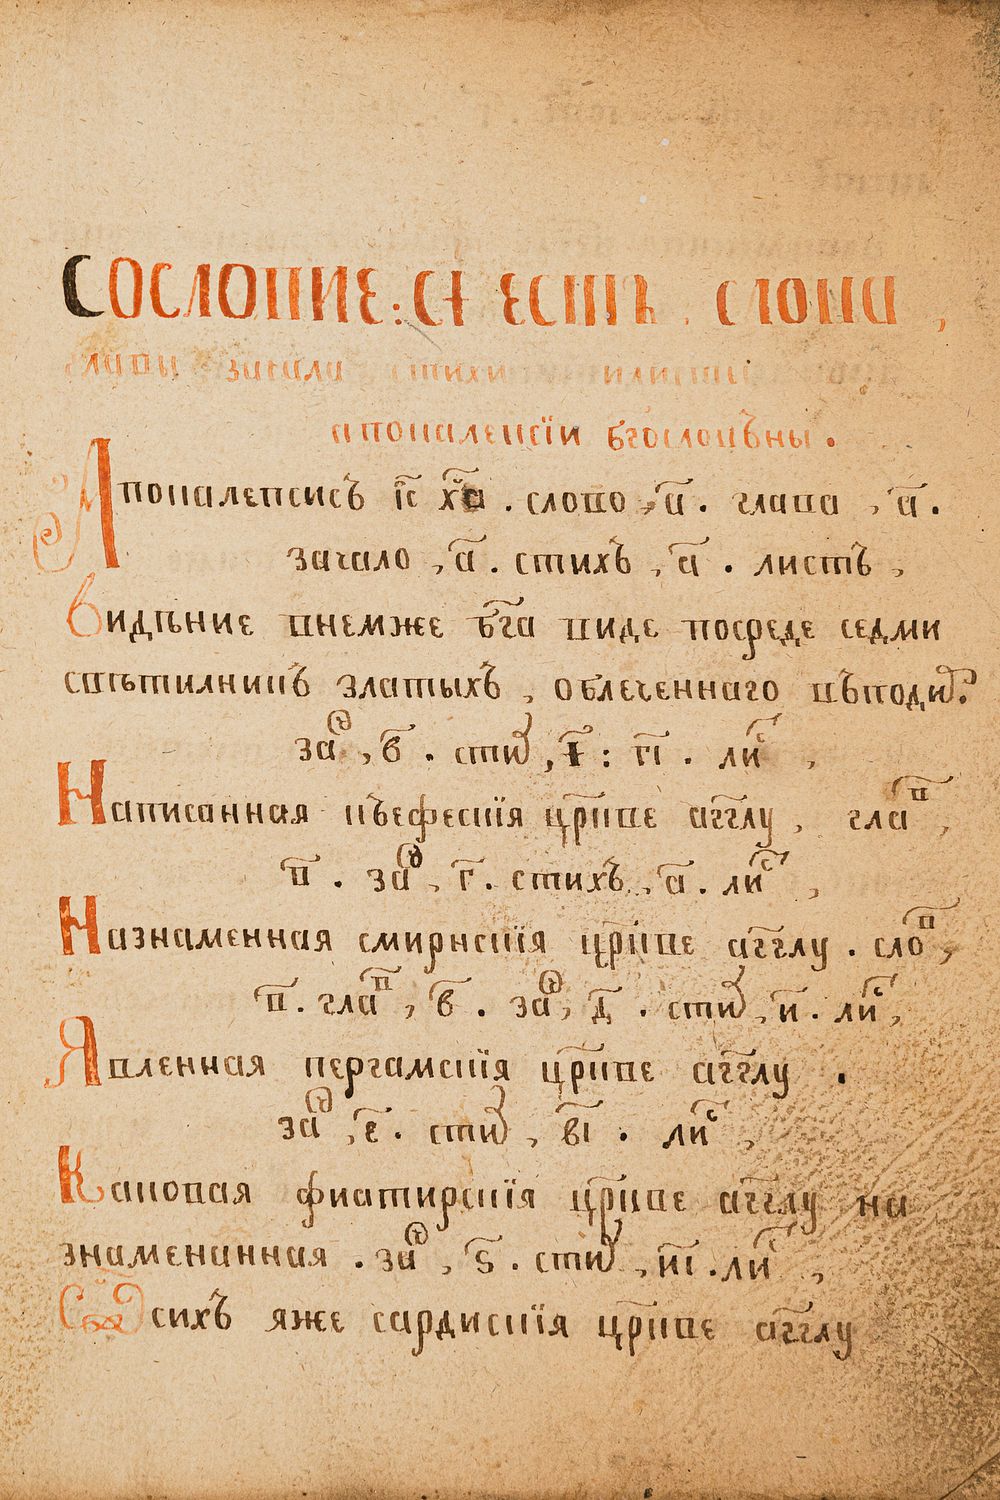 Сословие: сѧ єсть. слова,
главы зачала стихи илисты
апокалепсїи бг҃ословъны.
Апокалепсисъ і҃с х҃а. слово, а҃. глава, а҃.
зачало, а҃. стихъ, а҃. листъ,
Видѣние внемже бг҃а виде посреде седми
свѣтилникъ златыхъ, облеченнаго въподи҃р
заⷱ҇, в҃. стиⷯ, і҃: г҃і. лиⷭ҇,
Написанная къефескїя цр҃кве агг҃лу, глаⷡ҇,
в҃. заⷱ҇, г҃. стихъ, а҃. лиⷭ҇,
Назнаменная смирнскїя цр҃кве агг҃лу. слоⷡ҇,
в҃. глаⷡ҇, в҃. заⷱ҇, д҃. стиⷯ, и҃. лиⷭ҇,
Явленная пергамскїя цр҃кве агг҃лу.
заⷱ҇, є҃. стиⷯ, в҃і. лиⷭ҇,
Каковая фиатирскїя цр҃кве агг҃лу на
знаменанная. заⷱ҇, ѕ҃. стиⷯ, и҃і. лиⷭ҇,
Ѿсихъ яже сардискїя цр҃кве агг҃лу